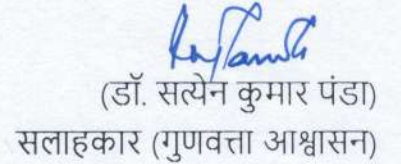 (डॉ. सत्येन कुमार पंडा)
सलाहकार (गुणवत्ता आश्वासन)